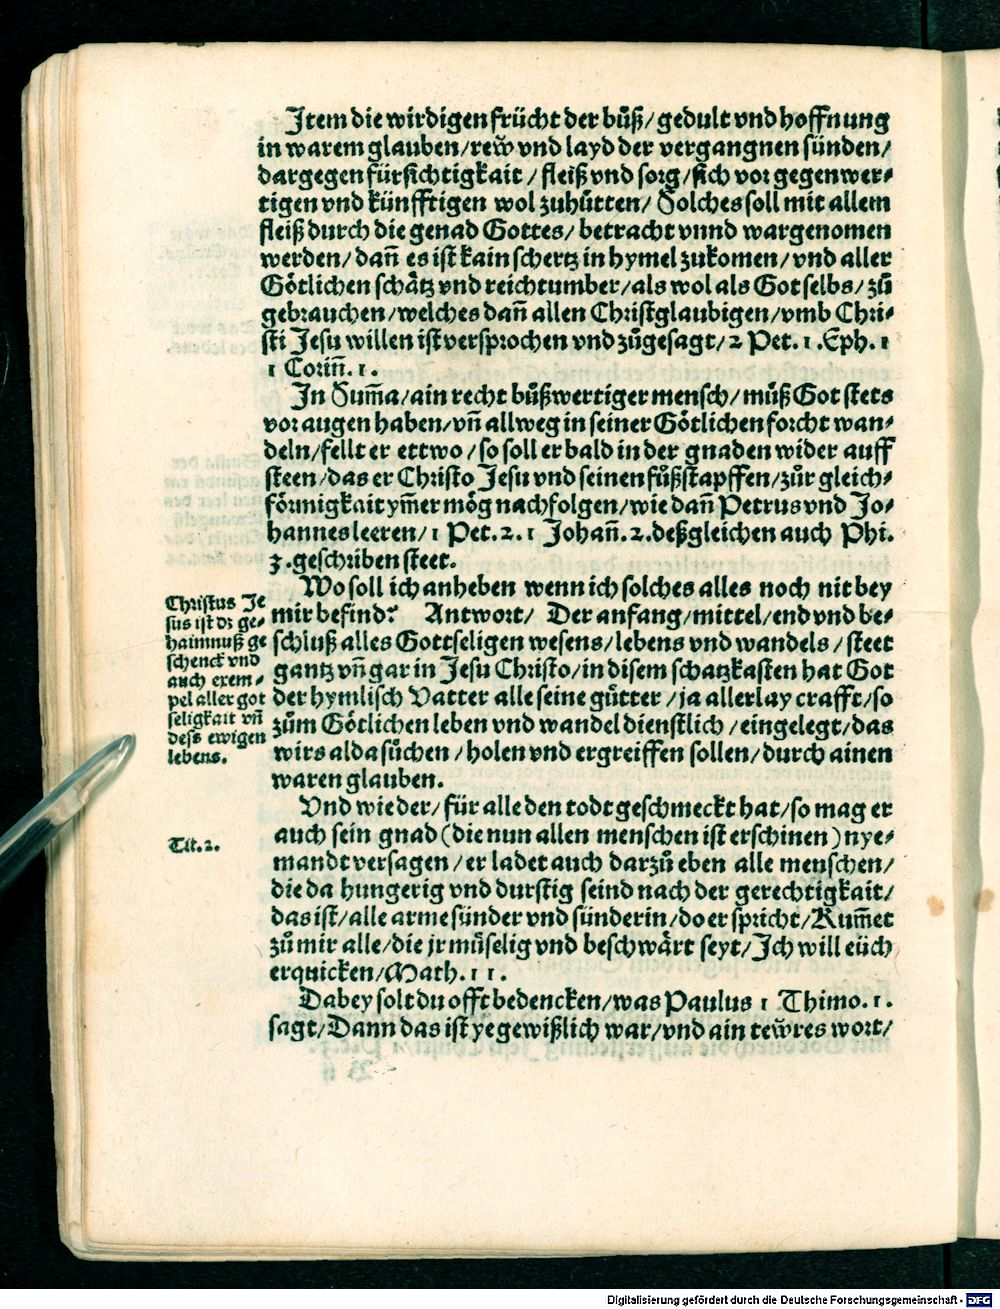 Item die wirdigen frücht der bůß/ gedult vnd hoffnung
in warem glauben/ rew̌ vnd layd der vergangnen sünden/
dargegen fürsichtigkait/ fleiß vnd sorg/ sich vor gegenwer⸗
tigen vnd künfftigen wol zuhůtten/ Solches soll mit allem
fleiß durch die genad Gottes/ betracht vnnd wargenomen
werden/ dañ es ist kain schertz in hymel zukomen/ vnd aller
Götlichen schåtz vnd reichtumber/ als wol als Got selbs/ zů
gebrauchen/ welches dañ allen Christglaubigen/ vmb Chri⸗
sti Jesu willen ist versprochen vnd zůgesagt/ 2 Pet. 1. Eph. 1
1 Corinñ. 1.
In Sum̃a/ ain recht bůßwertiger mensch/ můß Got stets
vor augen haben/ vñ allweg in seiner Götlichen forcht wan⸗
deln/ fellt er ettwo/ so soll er bald in der gnaden wider auff
steen/ das er Christo Jesu vnd seinen fůßstapffen/ zůr gleich⸗
förmigkait ym̃er mög nachfolgen/ wie dañ Petrus vnd Jo⸗
hannes leeren/ 1 Pet. 2. 1 Johañ. 2. deßgleichen auch Phi.
3. geschriben steet.
Wo soll ich anheben wenn ich solches alles noch nit bey
mir befind? Antwort/ Der anfang/ mittel/ end vnd be⸗
schluß alles Gottseligen wesens/ lebens vnd wandels/ steet
gantz vñ gar in Jesu Christo/ in disem schatzkasten hat Got
der hymlisch Vatter alle seine gůtter/ ja allerlay crafft/ so
zům Götlichen leben vnd wandel dienstlich/ eingelegt/ das
wirs alda sůchen/ holen vnd ergreiffen sollen/ durch ainen
waren glauben.
Christus Je
sus ist dz ge⸗
haimnuß ge
schenck vnd
auch exem⸗
pel aller got
seligkait vñ
dess ewigen
lebens.
Vnd wie der/ für alle den todt geschmeckt hat/ so mag er
auch sein gnad (die nun allen menschen ist erschinen) nye⸗
mandt versagen/ er ladet auch darzů eben alle menschen/
die da hungerig vnd durstig seind nach der gerechtigkait/
das ist/ alle arme sünder vnd sünderin/ do er spricht/ Kum̃et
zů mir alle/ die jr můselig vnd beschwårt seyt/ Ich will eüch
erquicken/ Math. 11.
Tit. 2.
Dabey solt du offt bedencken/ was Paulus 1 Thimo. 1.
sagt/ Dann das ist ye gewißlich war/ vnd ain tew̌res wort/
Digitalisierung gefördert durch die Deutsche Forschungsgemeinschaft - DFG